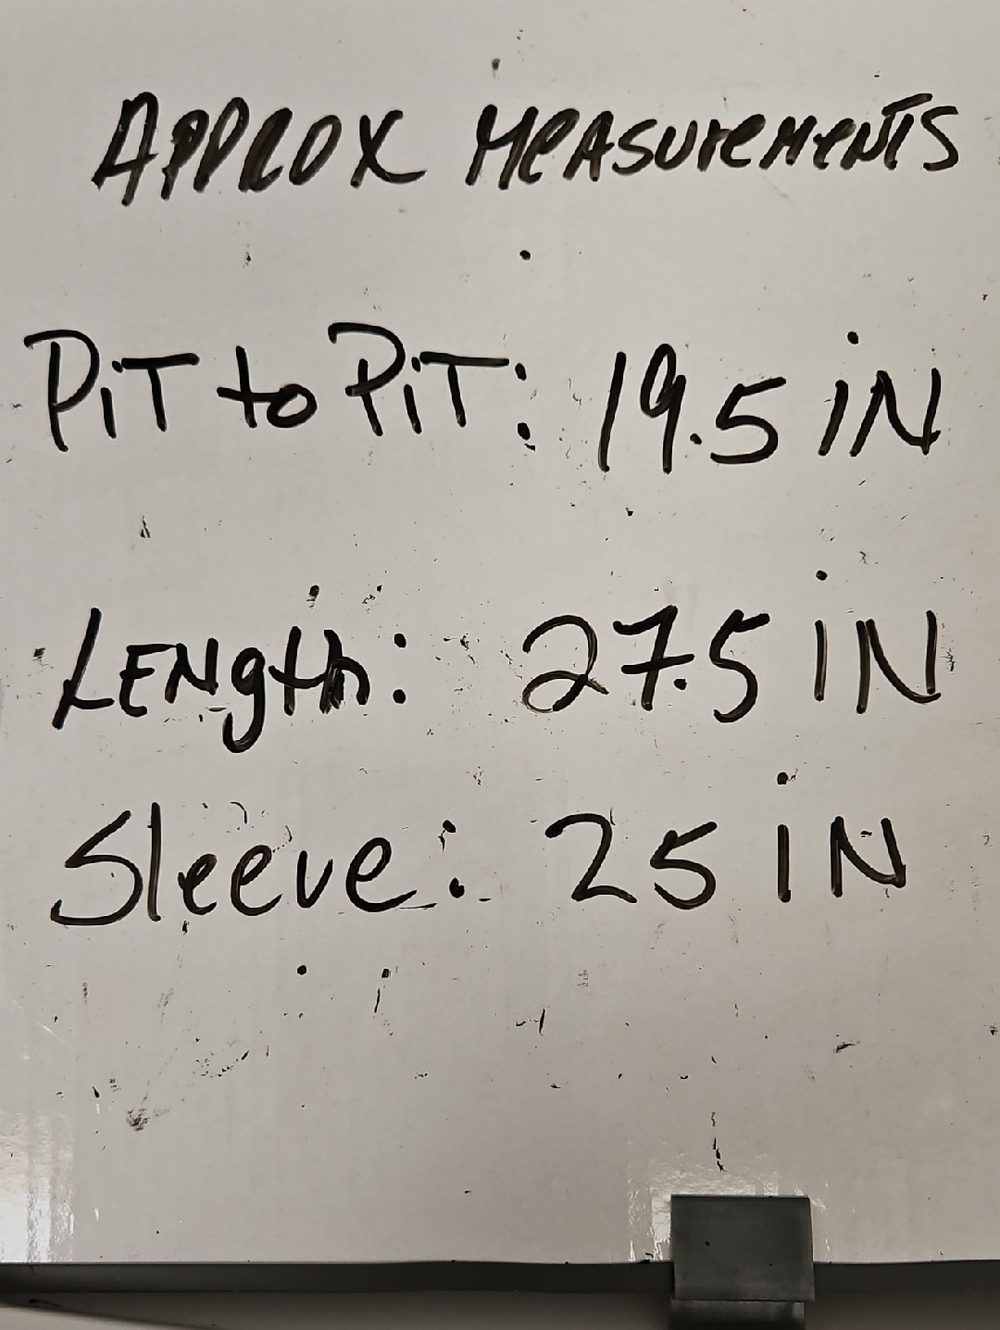 APPROX MEASUREMENTS
PiT to PiT: 19.5 iN
LENgth: 27.5 iN
Sleeve: 25 iN